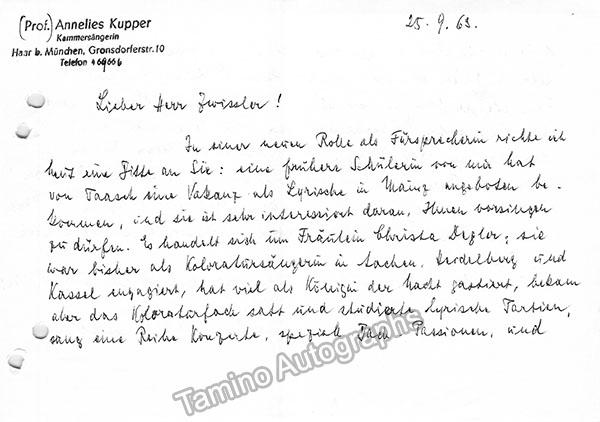 (Prof.) Annelies Kupper
Kammersängerin
Haar b. München, Gronsdorferstr. 10
Telefon 469666
25. 9. 63.
Lieber Herr Zwissler!
In einer neuen Rolle als Fürsprecherin richte ich
heut eine Bitte an Sie: eine frühere Schülerin von mir hat
von Taasch eine Vakanz als Lyrische in Mainz angeboten be-
kommen, und sie ist sehr interessiert daran, Ihnen vorsingen
zu dürfen. Es handelt sich um Fräulein Christa Degler; sie
war bisher als Koloratursängerin in Aachen, Heidelberg und
Kassel engagiert, hat viel als Königin der Nacht gastiert, bekam
aber das Koloraturfach satt und studierte lyrische Partien,
sang eine Reihe Konzerte, speziell Passionen, und
Tamino Autographs